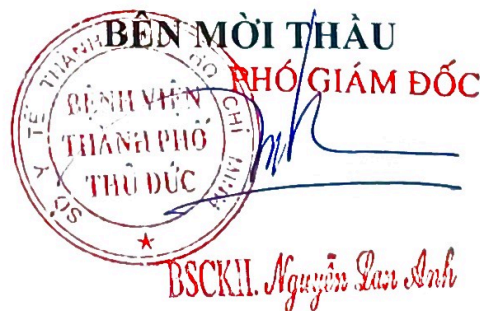 BÊN MỜI THẦU
PHÓ GIÁM ĐỐC
SỞ Y TẾ THÀNH PHỐ HỒ CHÍ MINH
BỆNH VIỆN
THÀNH PHỐ
THỦ ĐỨC
BSCKII. Nguyễn Lan Anh